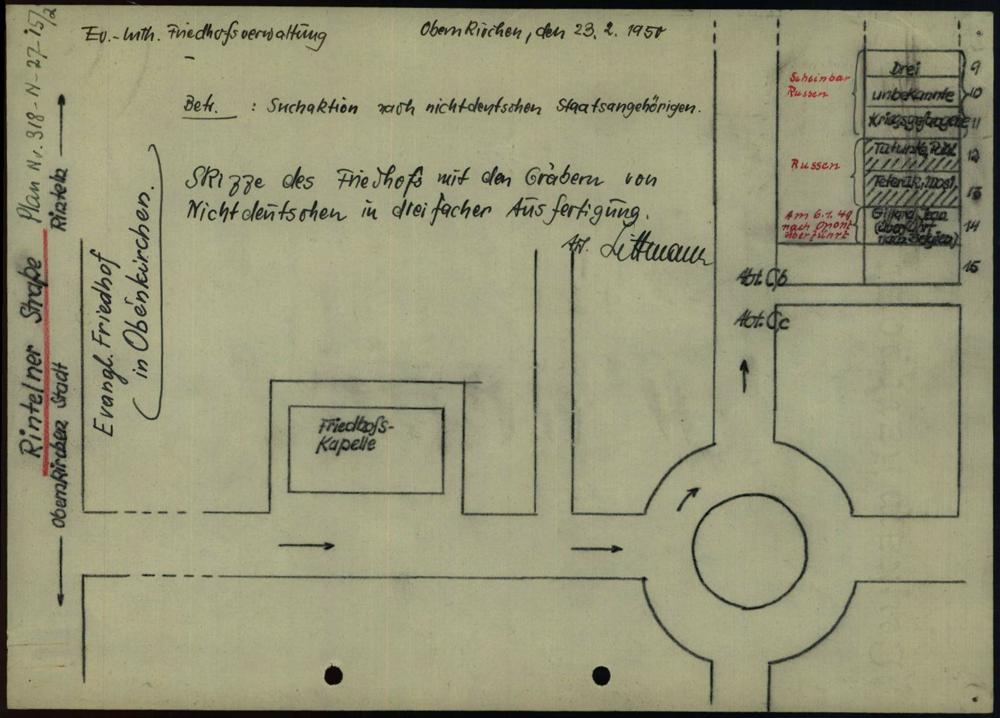 Ev.-luth. Friedhofsverwaltung
Obernkirchen, den 23. 2. 1950
Betr. : Suchaktion nach nichtdeutschen Staatsangehörigen.
Skizze des Friedhofs mit den Gräbern von
Nichtdeutschen in dreifacher Ausfertigung.
Littmann
Plan Nr. 318-N-27-15/2
Rintelner Straße
Rinteln
Obernkirchen Stadt
Evangl. Friedhof
in Obernkirchen.
Friedhofs-
Kapelle
Scheinbar
Russen
Drei
unbekannte
Kriegsgefangene
9
10
11
Russen
12
13
14
15
Am 6.7.49
nach
überführt
Abt. C,b
Abt. C,c